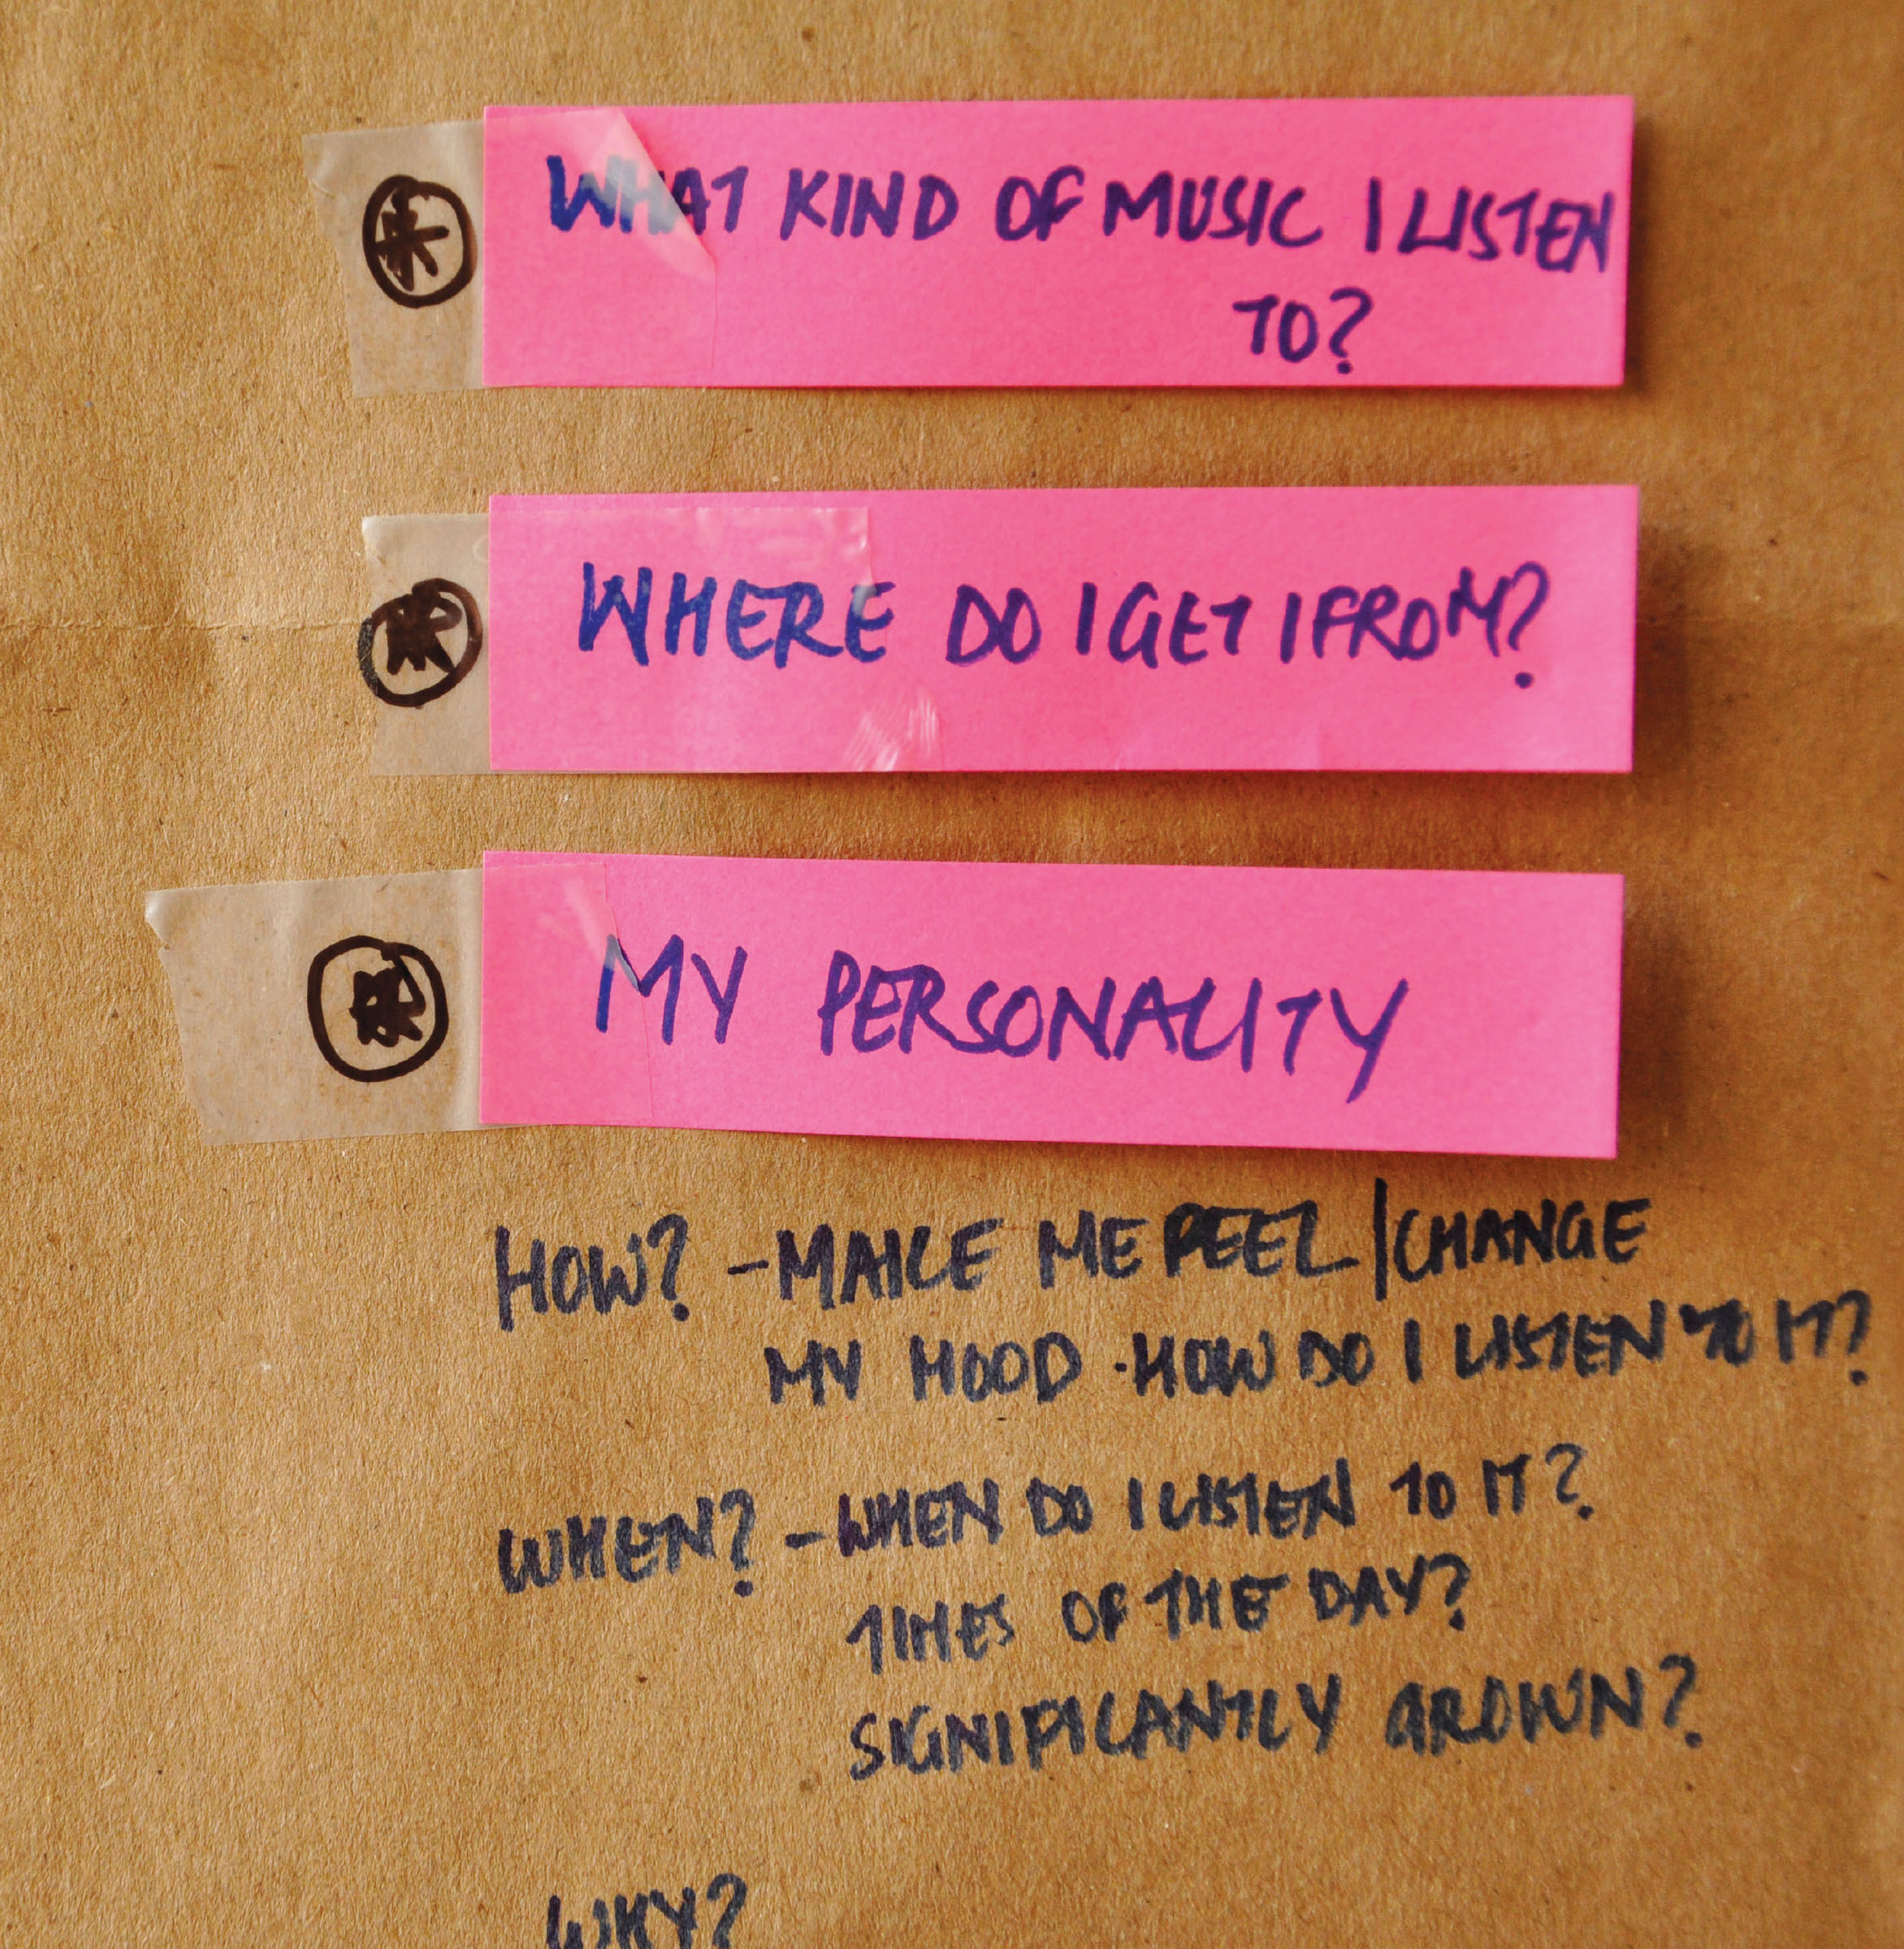 WHAT KIND OF MUSIC I LISTEN
TO?
WHERE DO I GET I FROM?
MY PERSONALITY
HOW? - MAKE ME FEEL / CHANGE
MY MOOD · HOW DO I LISTEN TO IT?
WHEN? - WHEN DO I LISTEN TO IT?
TIMES OF THE DAY?
SIGNIFICANTLY GROWN?
WHY?